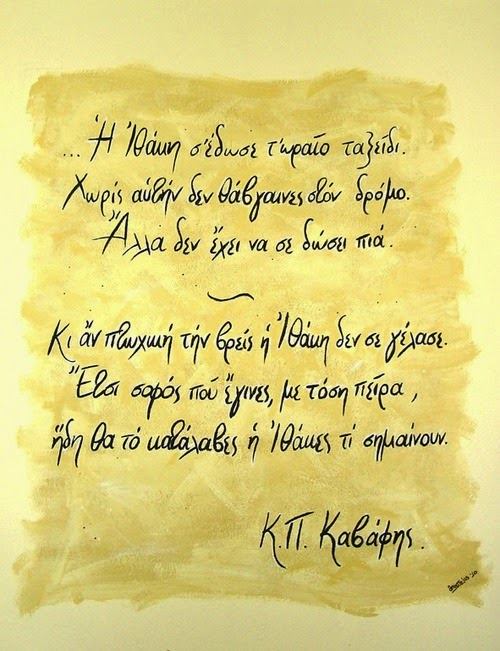 ...Ἡ Ἰθάκη σ'ἔδωσε τ'ὡραῖο ταξεῖδι.
Χωρίς αὐτήν δεν θἄβγαινες στόν δρόμο.
Ἄλλα δεν ἔχει να σε δώσει πιά.
~
Κι ἄν πτωχική τήν βρεῖς ἡ Ἰθάκη δεν σε γέλασε.
Ἔτσι σοφός πού ἔγινες, με τόση πεῖρα,
ἤδη θα τό κατάλαβες ἡ Ἰθάκες τί σημαίνουν.
Κ.Π. Καβάφης.